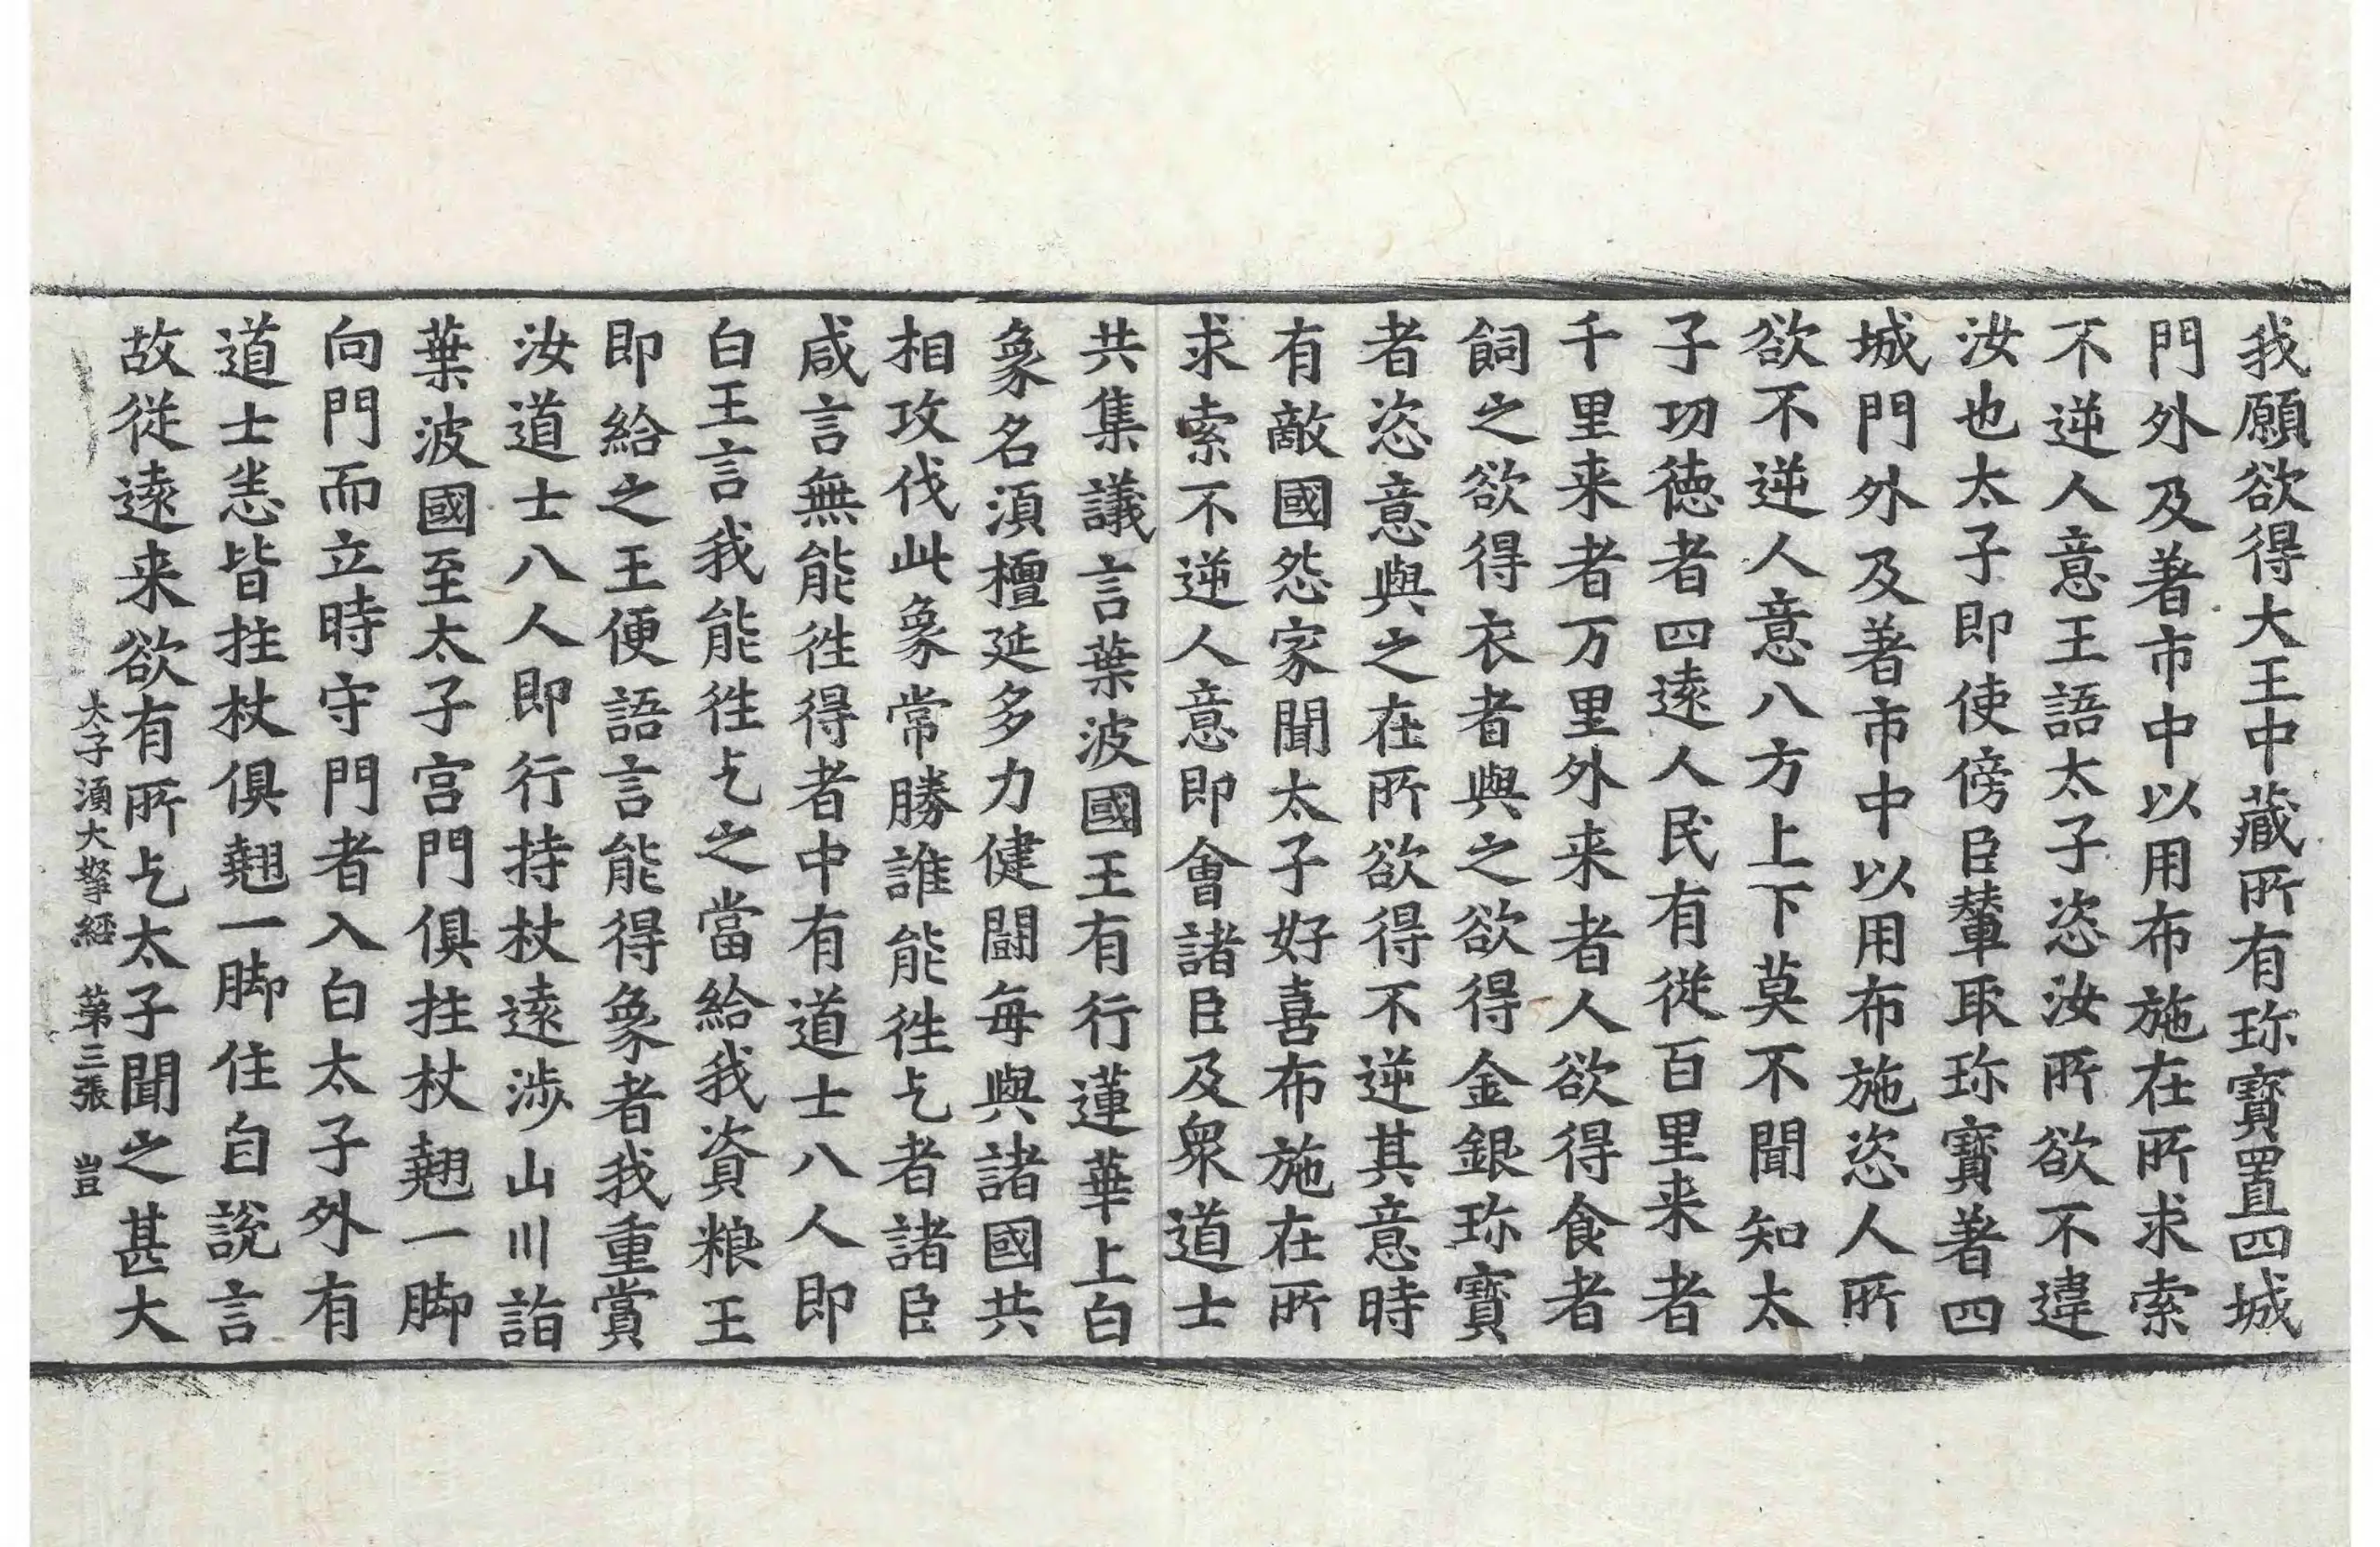 我願欲得大王中藏所有珎寶置四城
門外及著市中以用布施在所求索
不逆人意王語太子恣汝所欲不違
汝也太子即使傍臣輦取珎寶著四
城門外及著市中以用布施恣人所
欲不逆人意八方上下莫不聞知太
子功德者四遠人民有從百里来者
千里来者万里外来者人欲得食者
飼之欲得衣者與之欲得金銀珎寶
者恣意與之在所欲得不逆其意時
有敵國怨家聞太子好喜布施在所
求索不逆人意即會諸臣及衆道士
共集議言葉波國王有行蓮華上白
象名湏檀延多力健鬪每與諸國共
相攻伐此象常勝誰能徃乞者諸臣
咸言無能徃得者中有道士八人即
白王言我能徃乞之當給我資粮王
即給之王便語言能得象者我重賞
汝道士八人即行持杖遠涉山川詣
葉波國至太子宮門俱拄杖翹一脚
向門而立時守門者入白太子外有
道士悉皆拄杖俱翹一脚住自說言
故從遠来欲有所乞太子聞之甚大
太子湏大拏經 第三張 豈